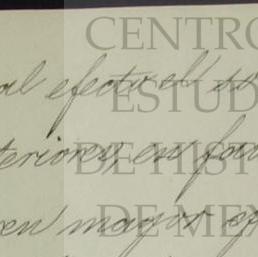 CENTRO
al efecto el
ESTUD
teriores, en fav
DE HIST
en mayor ef
DE MEX